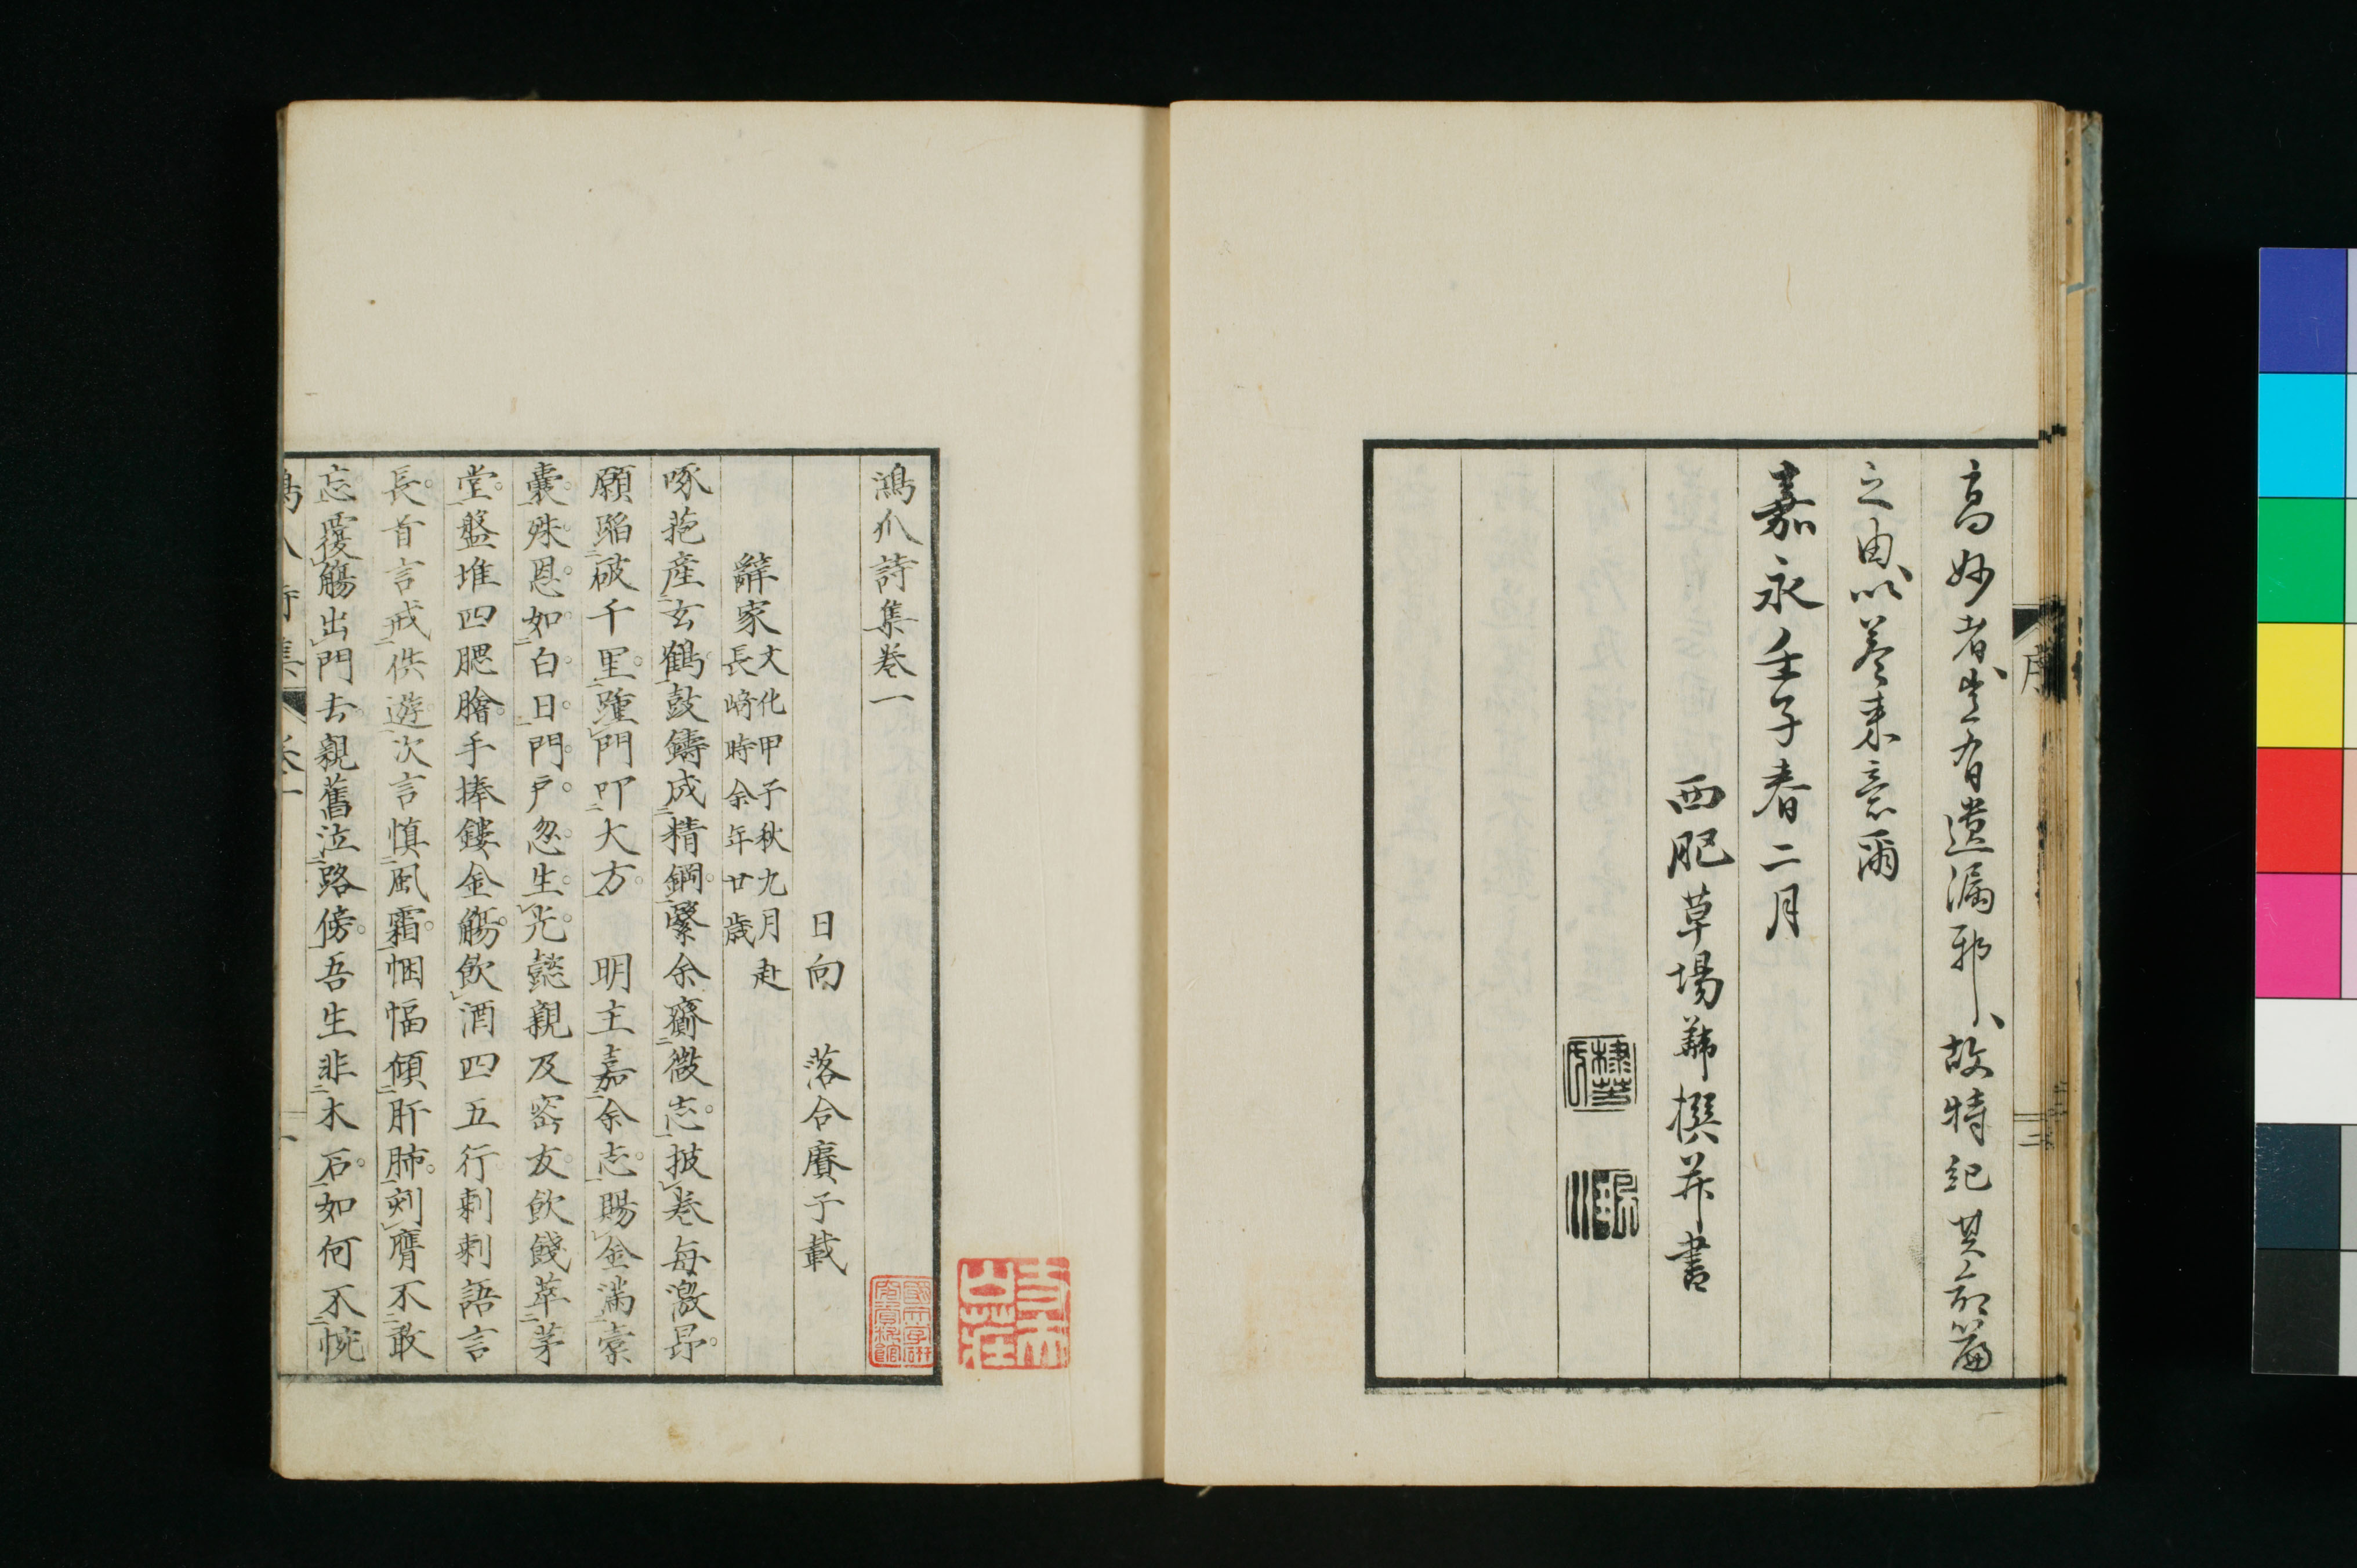 高妙者豈有遺漏邪故特記其前篇
之由以答来意爾
嘉永壬子春二月
西肥草場韡撰并書
序
二
鴻爪詩集巻一
日向 落合賡子載
辭家
文化甲子秋九月赴
長崎時余年廿歳
啄苞産玄鶴鼓鑄成精鋼緊余齎微志披巻毎激昂
願蹈破千里踵門叩大方 明主嘉余志賜金満槖
嚢殊恩如白日門戸忽生光懿親及密友飲餞萃茅
堂盤堆四腮膾手捧鏤金觴飲酒四五行剌剌語言
長首言戒佚遊次言慎風霜悃愊傾肝肺刻膺不敢
忘覆觴出門去親舊泣路傍吾生非木石如何不惋